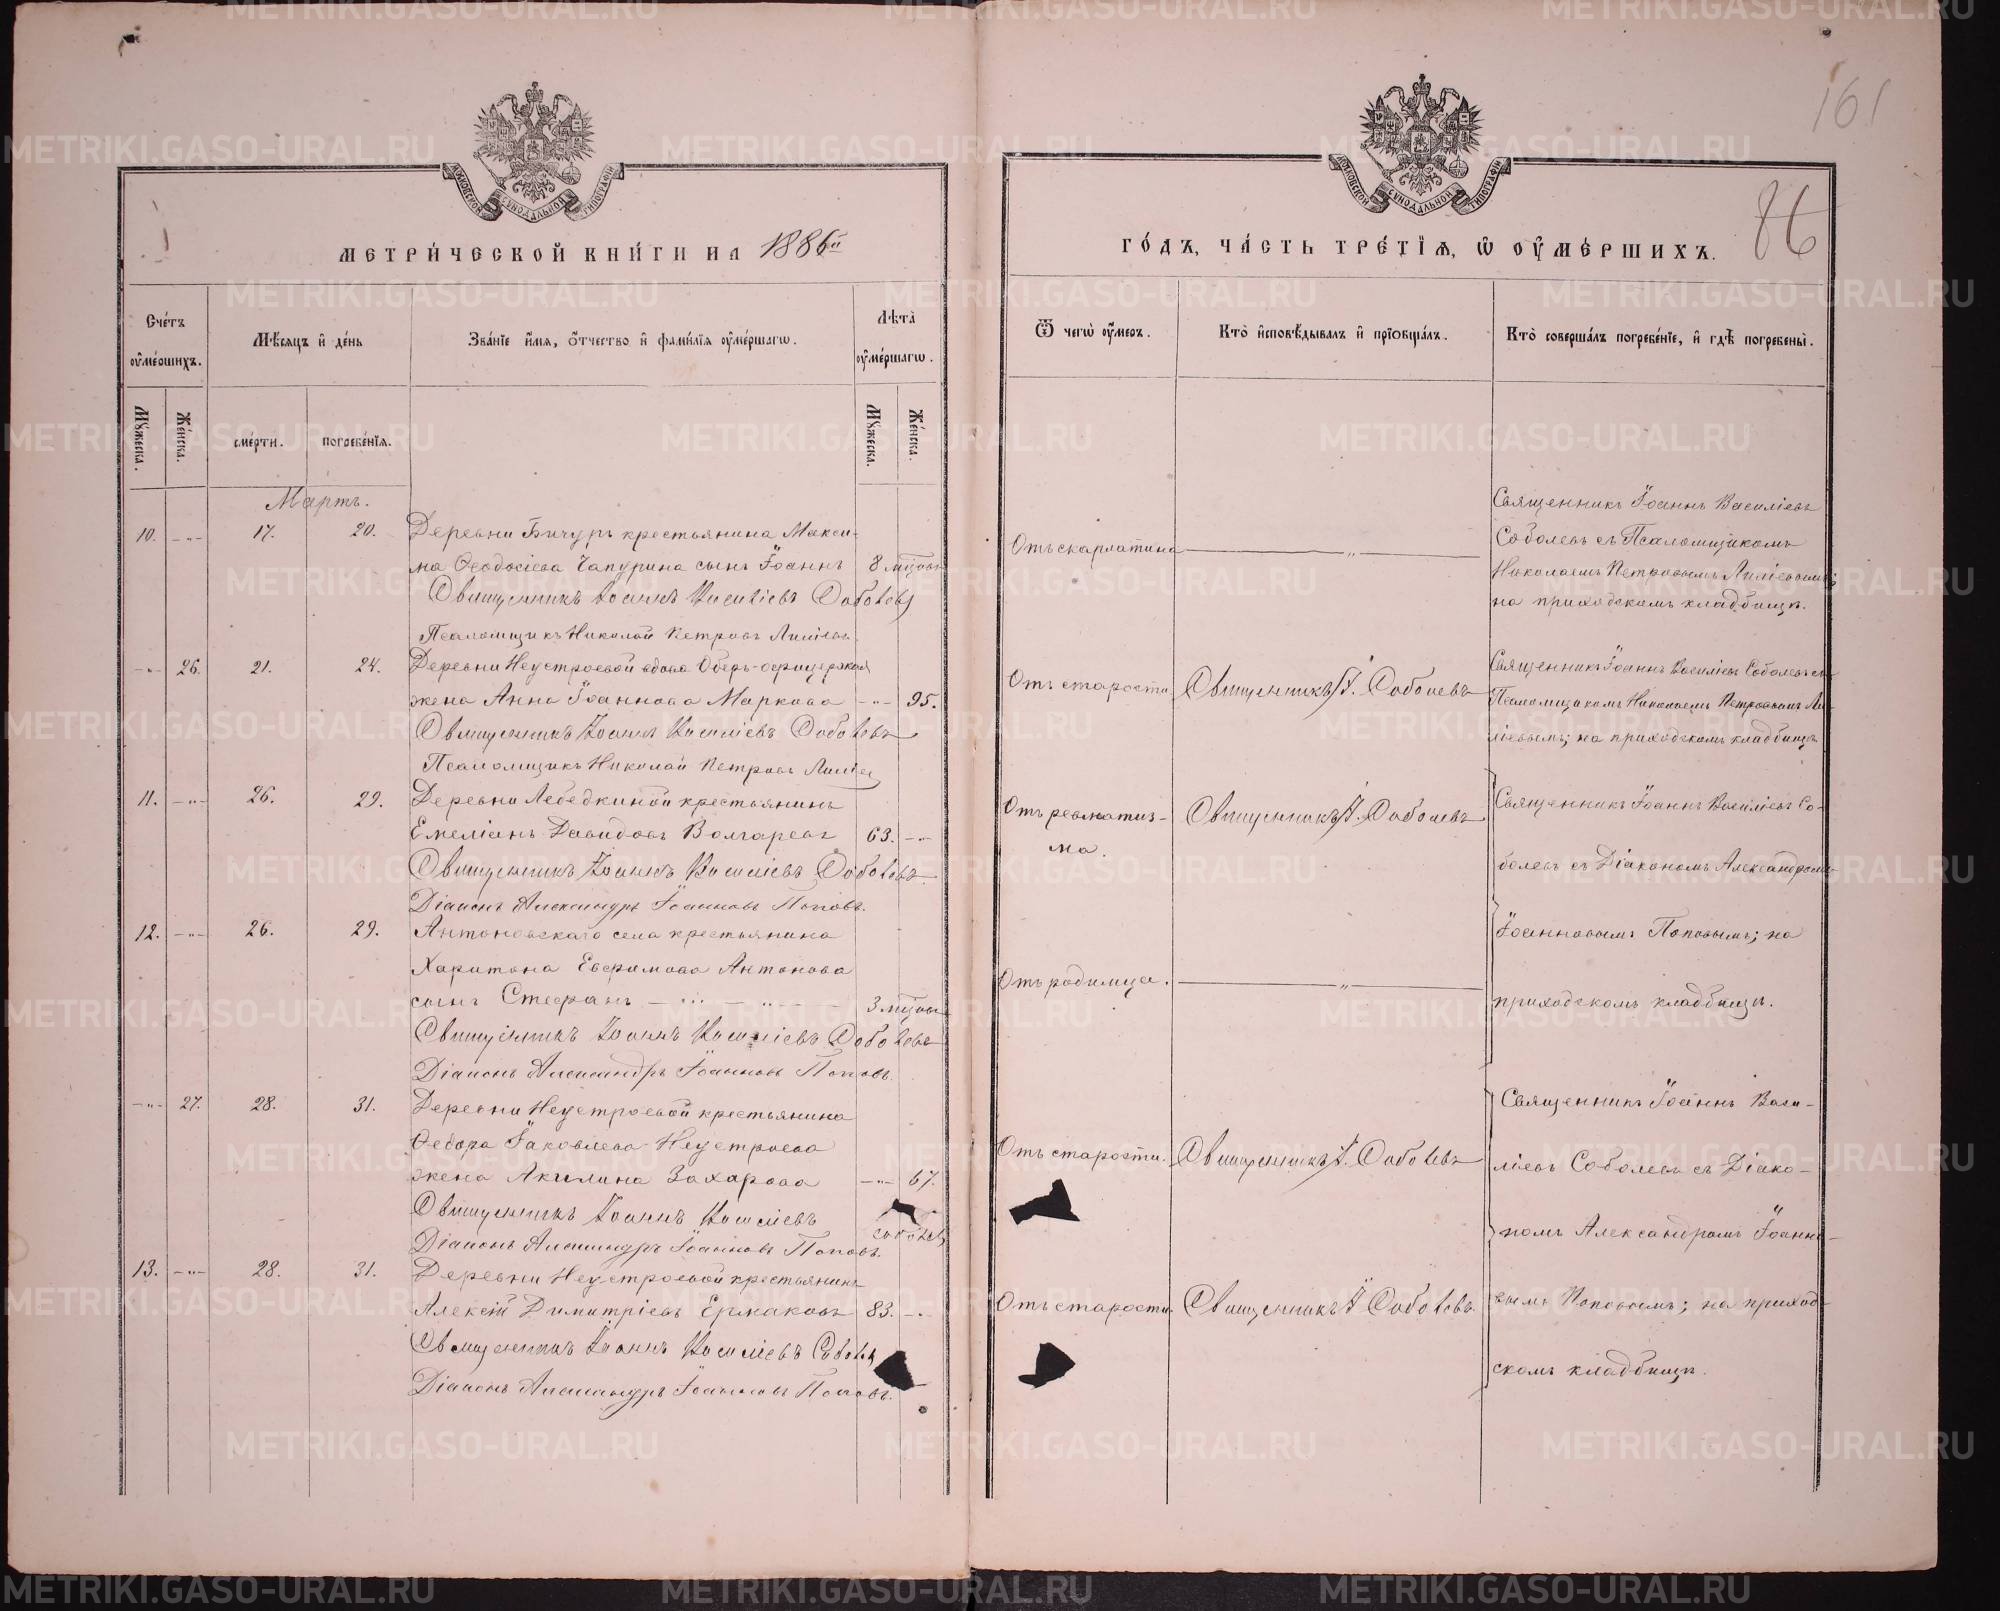 161
86
МЕТРИЧЕСКОЙ КНИГИ НА 1886й
ГОДЪ, ЧАСТЬ ТРЕТІЯ, Ѿ ОУМЕРШИХЪ.
Счетъ оумершихъ.
Мѣсяцъ и день
Званіе имя, отчество и фамилія оумершагѡ.
Лѣта оумершагѡ.
Ѿ чегѡ оумеръ.
Кто исповѣдывалъ и пріобщалъ.
Кто совершалъ погребеніе, и гдѣ погребены.
Мужеска.
Женска.
смерти.
погребенія.
Мужеска.
Женска.
Мартъ.
10. -„- 17. 20. Деревни Бичуръ крестьянина Макси-
ма Ѳеодосіева Чапурина сынъ Іоаннъ 8 мцовъ
Священникъ Іоаннъ Василіевъ Соболевъ
Псаломщикъ Николай Петровъ Лиліевъ
Отъ скарлатина
Священникъ Іоаннъ Василіевъ
Соболевъ съ Псаломщикомъ
Николаемъ Петровымъ Лиліевымъ;
на приходскомъ кладбищѣ.
-„- 26. 21. 24. Деревни Неустроевой вдова Оберъ-офицерская
жена Анна Іоаннова Маркова -„- 95.
Священникъ Іоаннъ Василіевъ Соболевъ
Псаломщикъ Николай Петровъ Лиліев
Отъ старости
Священникъ І. Соболевъ
Священникъ Іоаннъ Василіевъ Соболевъ съ
Псаломщикомъ Николаемъ Петровымъ Ли-
ліевымъ; на приходскомъ кладбищѣ
11. -„- 26. 29. Деревни Лебедкиной крестьянинъ
Емеліанъ Давидовъ Волгаревъ 63. -„-
Священникъ Іоаннъ Василіевъ Соболевъ.
Діаконъ Александръ Іоанновъ Поповъ.
Отъ ревматиз-
ма.
Священникъ І. Соболевъ
Священникъ Іоаннъ Василіевъ Со-
болевъ съ Діакономъ Александромъ
Іоанновымъ Поповымъ; на
приходскомъ кладбищѣ.
12. -„- 26. 29. Антоновскаго села крестьянина
Харитона Евфимова Антонова
сынъ Стефанъ 3 мцовъ
Священникъ Іоаннъ Василіевъ Соболевъ
Діаконъ Александръ Іоанновъ Поповъ.
Отъ родимца.
-„- 27. 28. 31. Деревни Неустроевой крестьянина
Ѳедора Іаковлева Неустроева
жена Акилина Захарова -„- 67.
Священникъ Іоаннъ Василіевъ
Соболев
Діаконъ Александръ Іоанновъ Поповъ.
Отъ старости.
Священникъ І. Соболевъ
Священникъ Іоаннъ Васи-
ліевъ Соболевъ съ Діако-
номъ Александромъ Іоанно-
вымъ Поповымъ; на приход-
скомъ кладбищѣ.
13. -„- 28. 31. Деревни Неустроевой крестьянинъ
Алексій Димитріевъ Ермаковъ 83. -„-
Священникъ Іоаннъ Василіевъ Собол
Діаконъ Александръ Іоанновъ Поповъ.
Отъ старости.
Священникъ І Соболевъ.